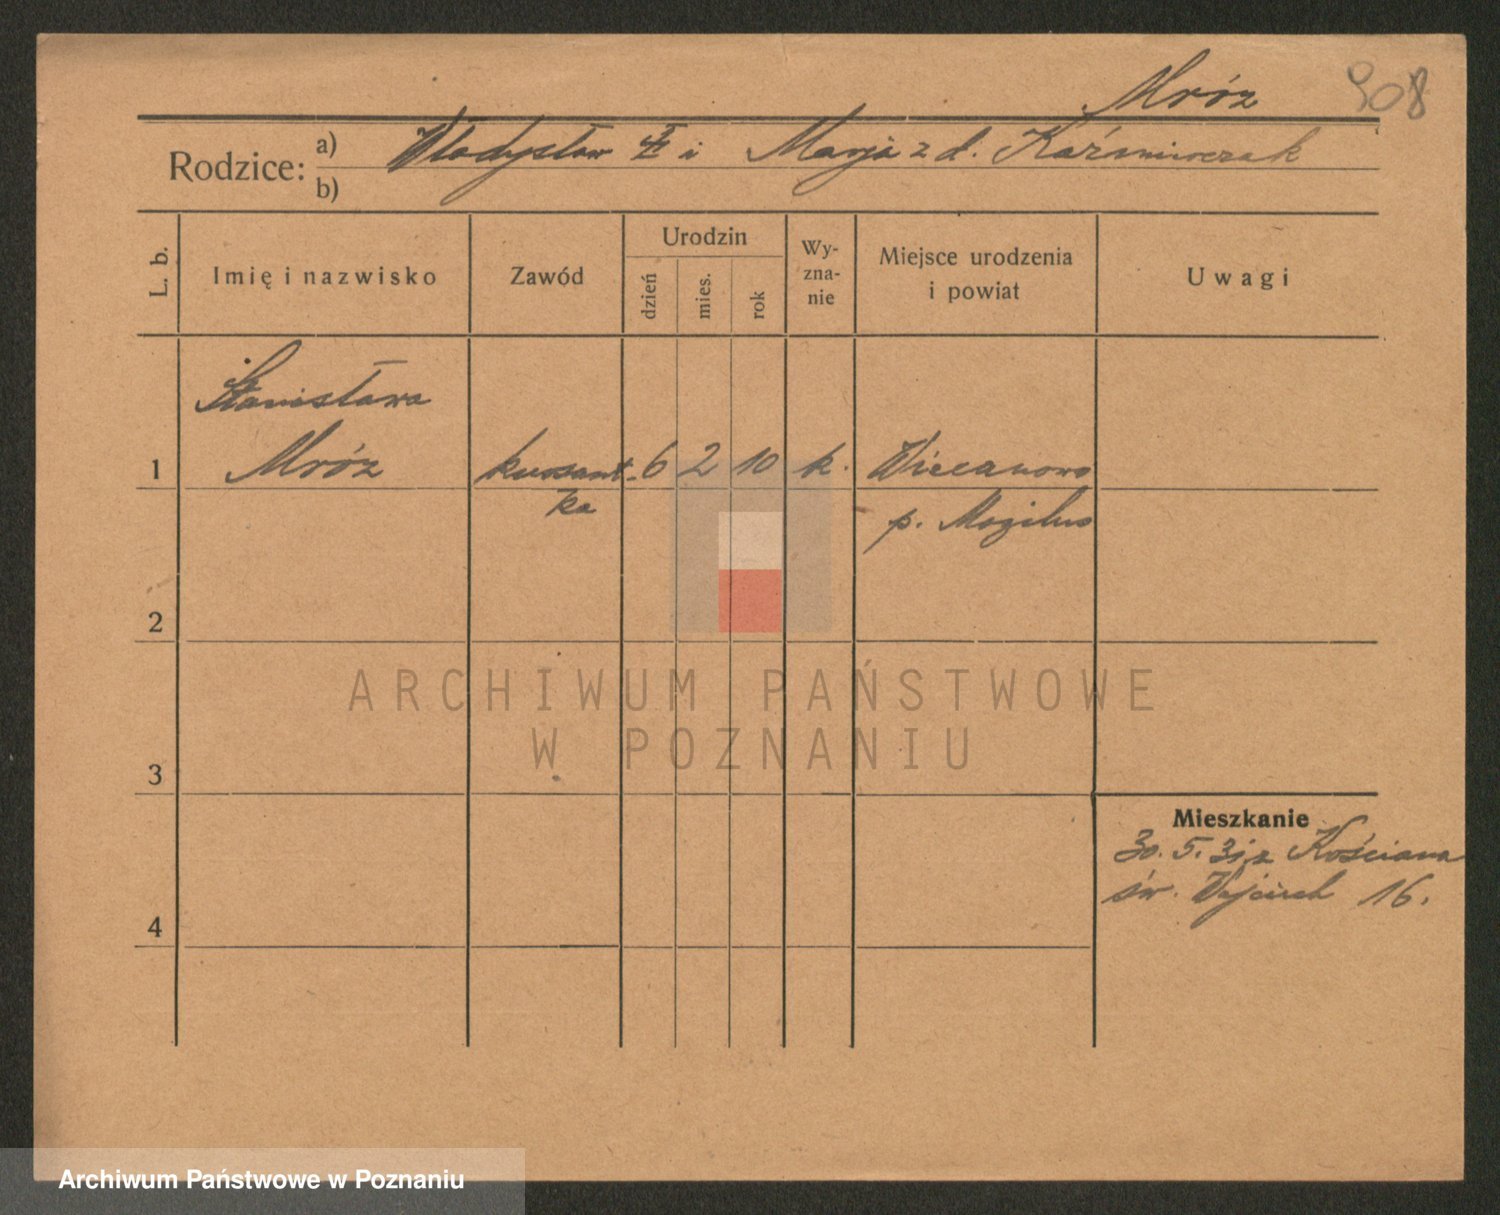 Mróz 908
Rodzice: a) Władysław i Marja z d. Kaźmierczak
b)
L. b. Imię i nazwisko Zawód Urodzin dzień mies. rok Wyznanie Miejsce urodzenia i powiat Uwagi
Stanisława
1 Mróz kursant- 6 2 10 k. Wiecanowo
ka p. Mogilno
2
ARCHIWUM PAŃSTWOWE
W POZNANIU
3
Mieszkanie
30. 5. 31 z Kościana
św. Wojciech 16.
4
Archiwum Państwowe w Poznaniu